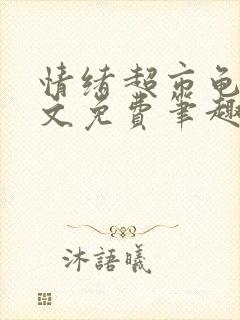 情绪超市龟
文免费笔趣
沐語曦